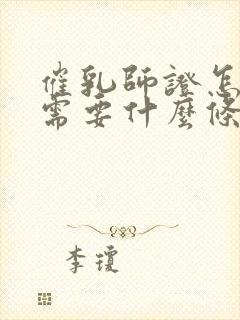 催乳師證怎
需要什麼條
李瓊